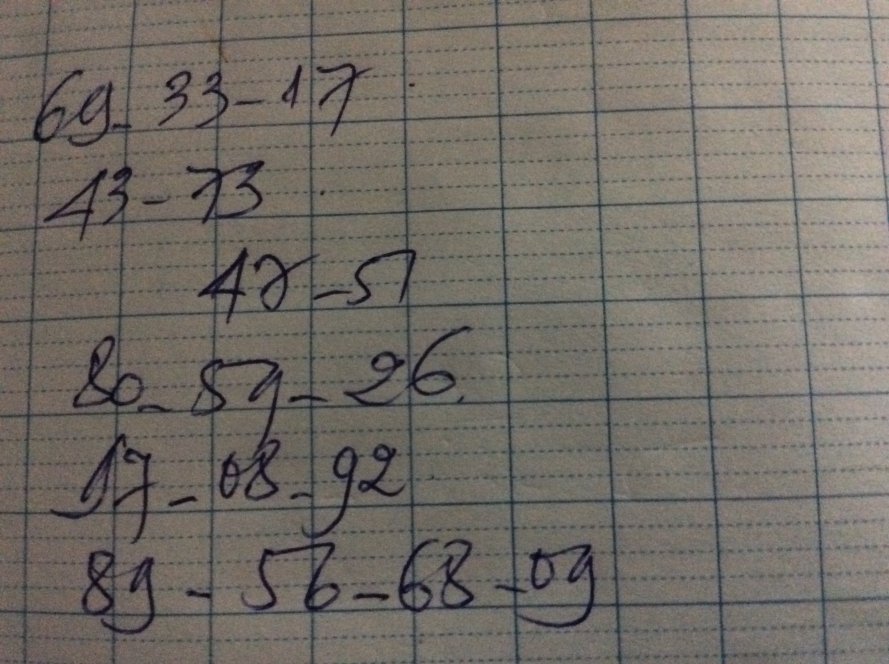 69-33-17
43-73
47-51
80-59-26
17-08-92
89-56-68-09